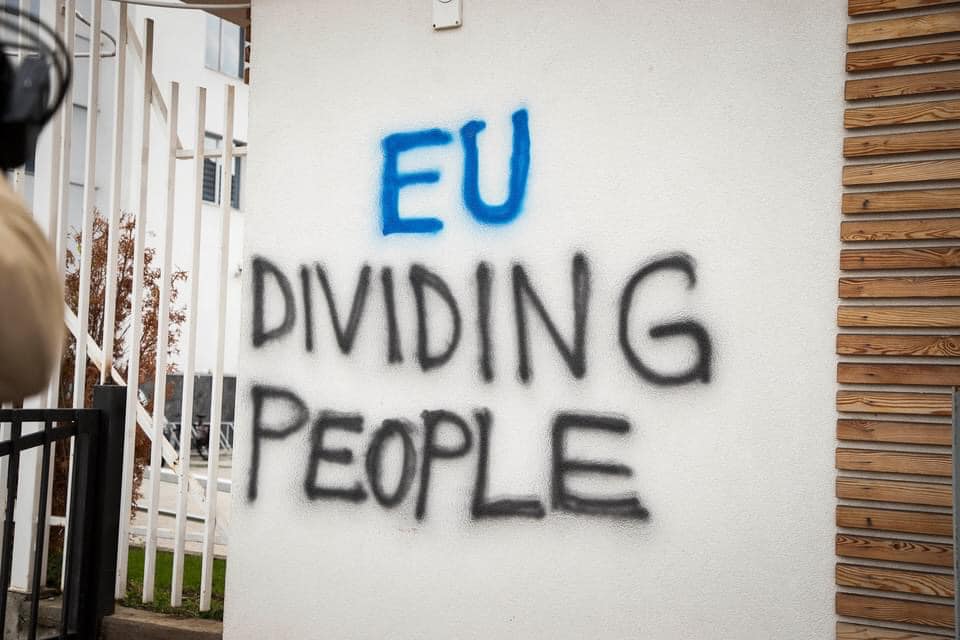 EU
DIVIDING
PEOPLE